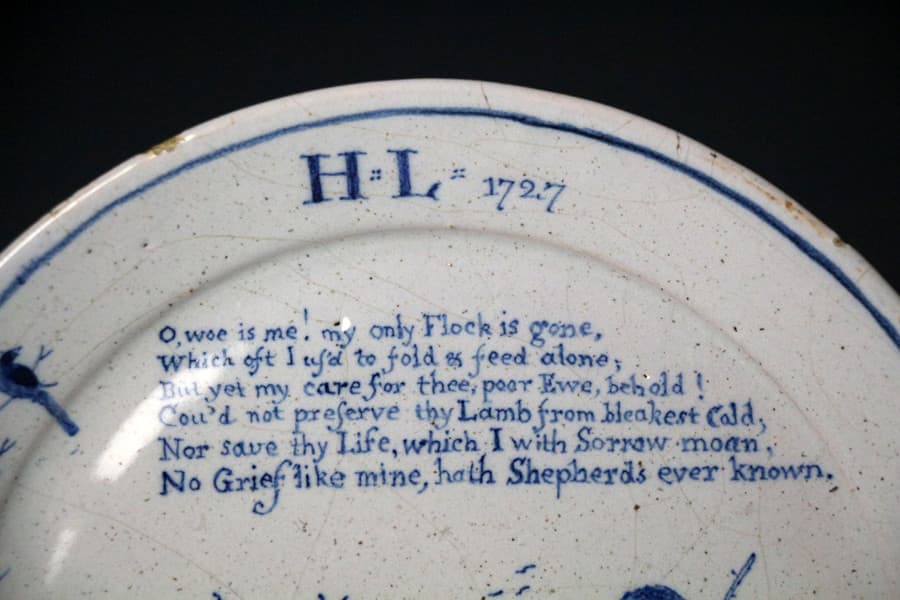 H = L = 1727
O, woe is me! my only Flock is gone,
Which oft I uſ'd to fold & feed alone;
But yet my care for thee, poor Ewe, behold!
Cou'd not preſerve thy Lamb from bleakest Cold,
Nor save thy Life, which I with Sorrow moan,
No Grief like mine, hath Shepherds ever known.